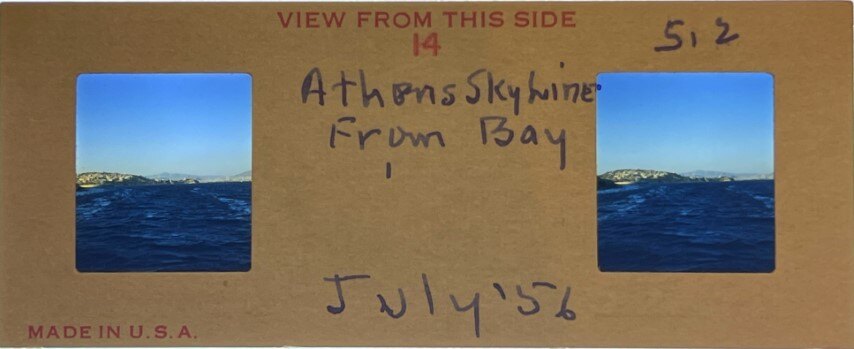 VIEW FROM THIS SIDE
14
5,2
Athens Skyline
From Bay
July '56
MADE IN U.S.A.